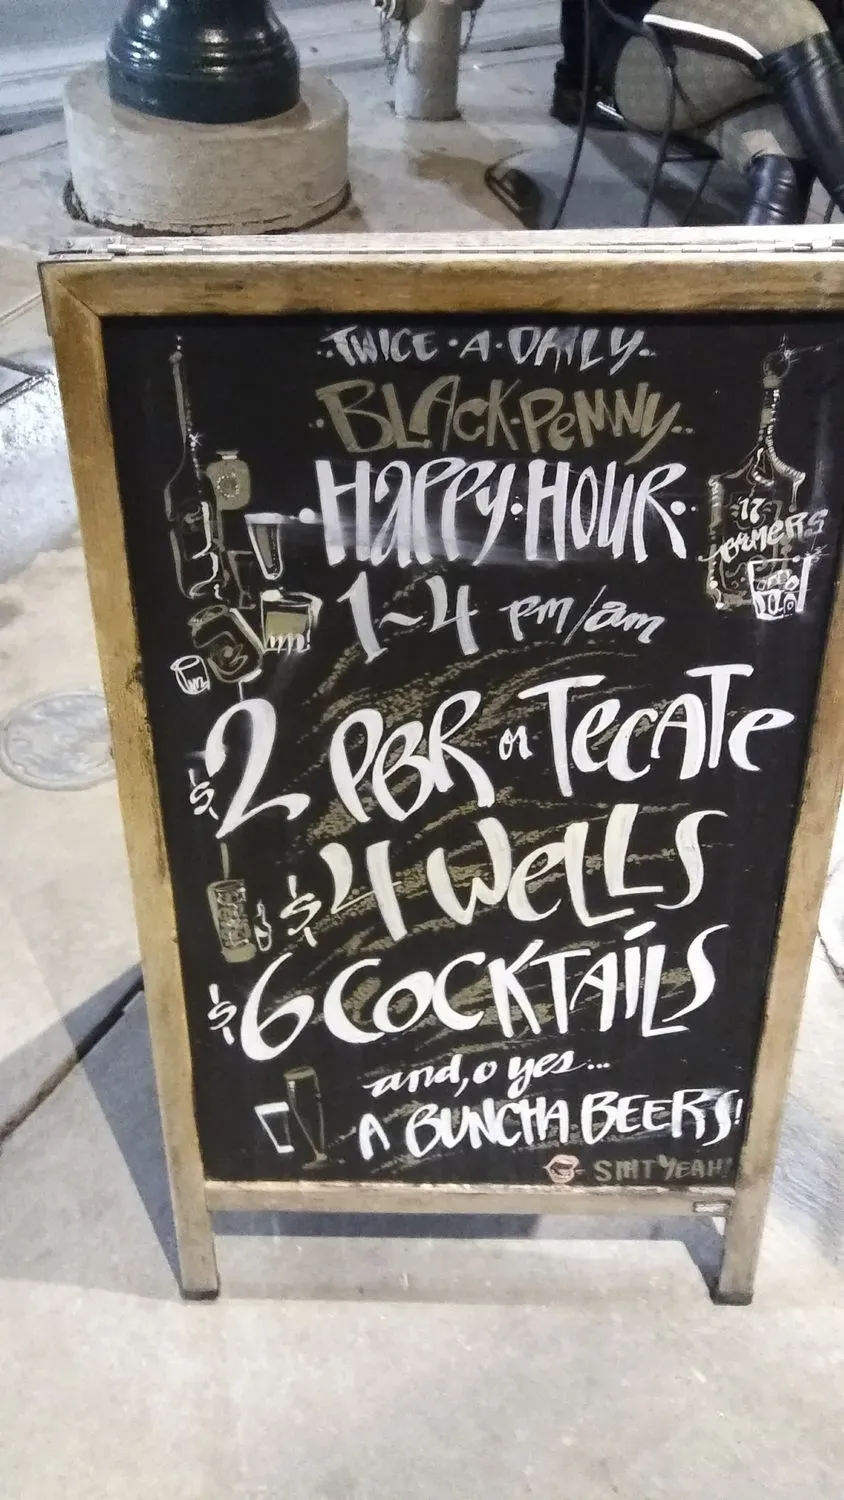 TWICE·A·DAILY
BLACK·PENNY
HAPPY·HOUR
17
1~4 pm/am
$2 PBR or TECATE
$4 WELLS
$6 COCKTAILS
and, o yes...
A BUNCHA BEERS!
SHTYEAH!